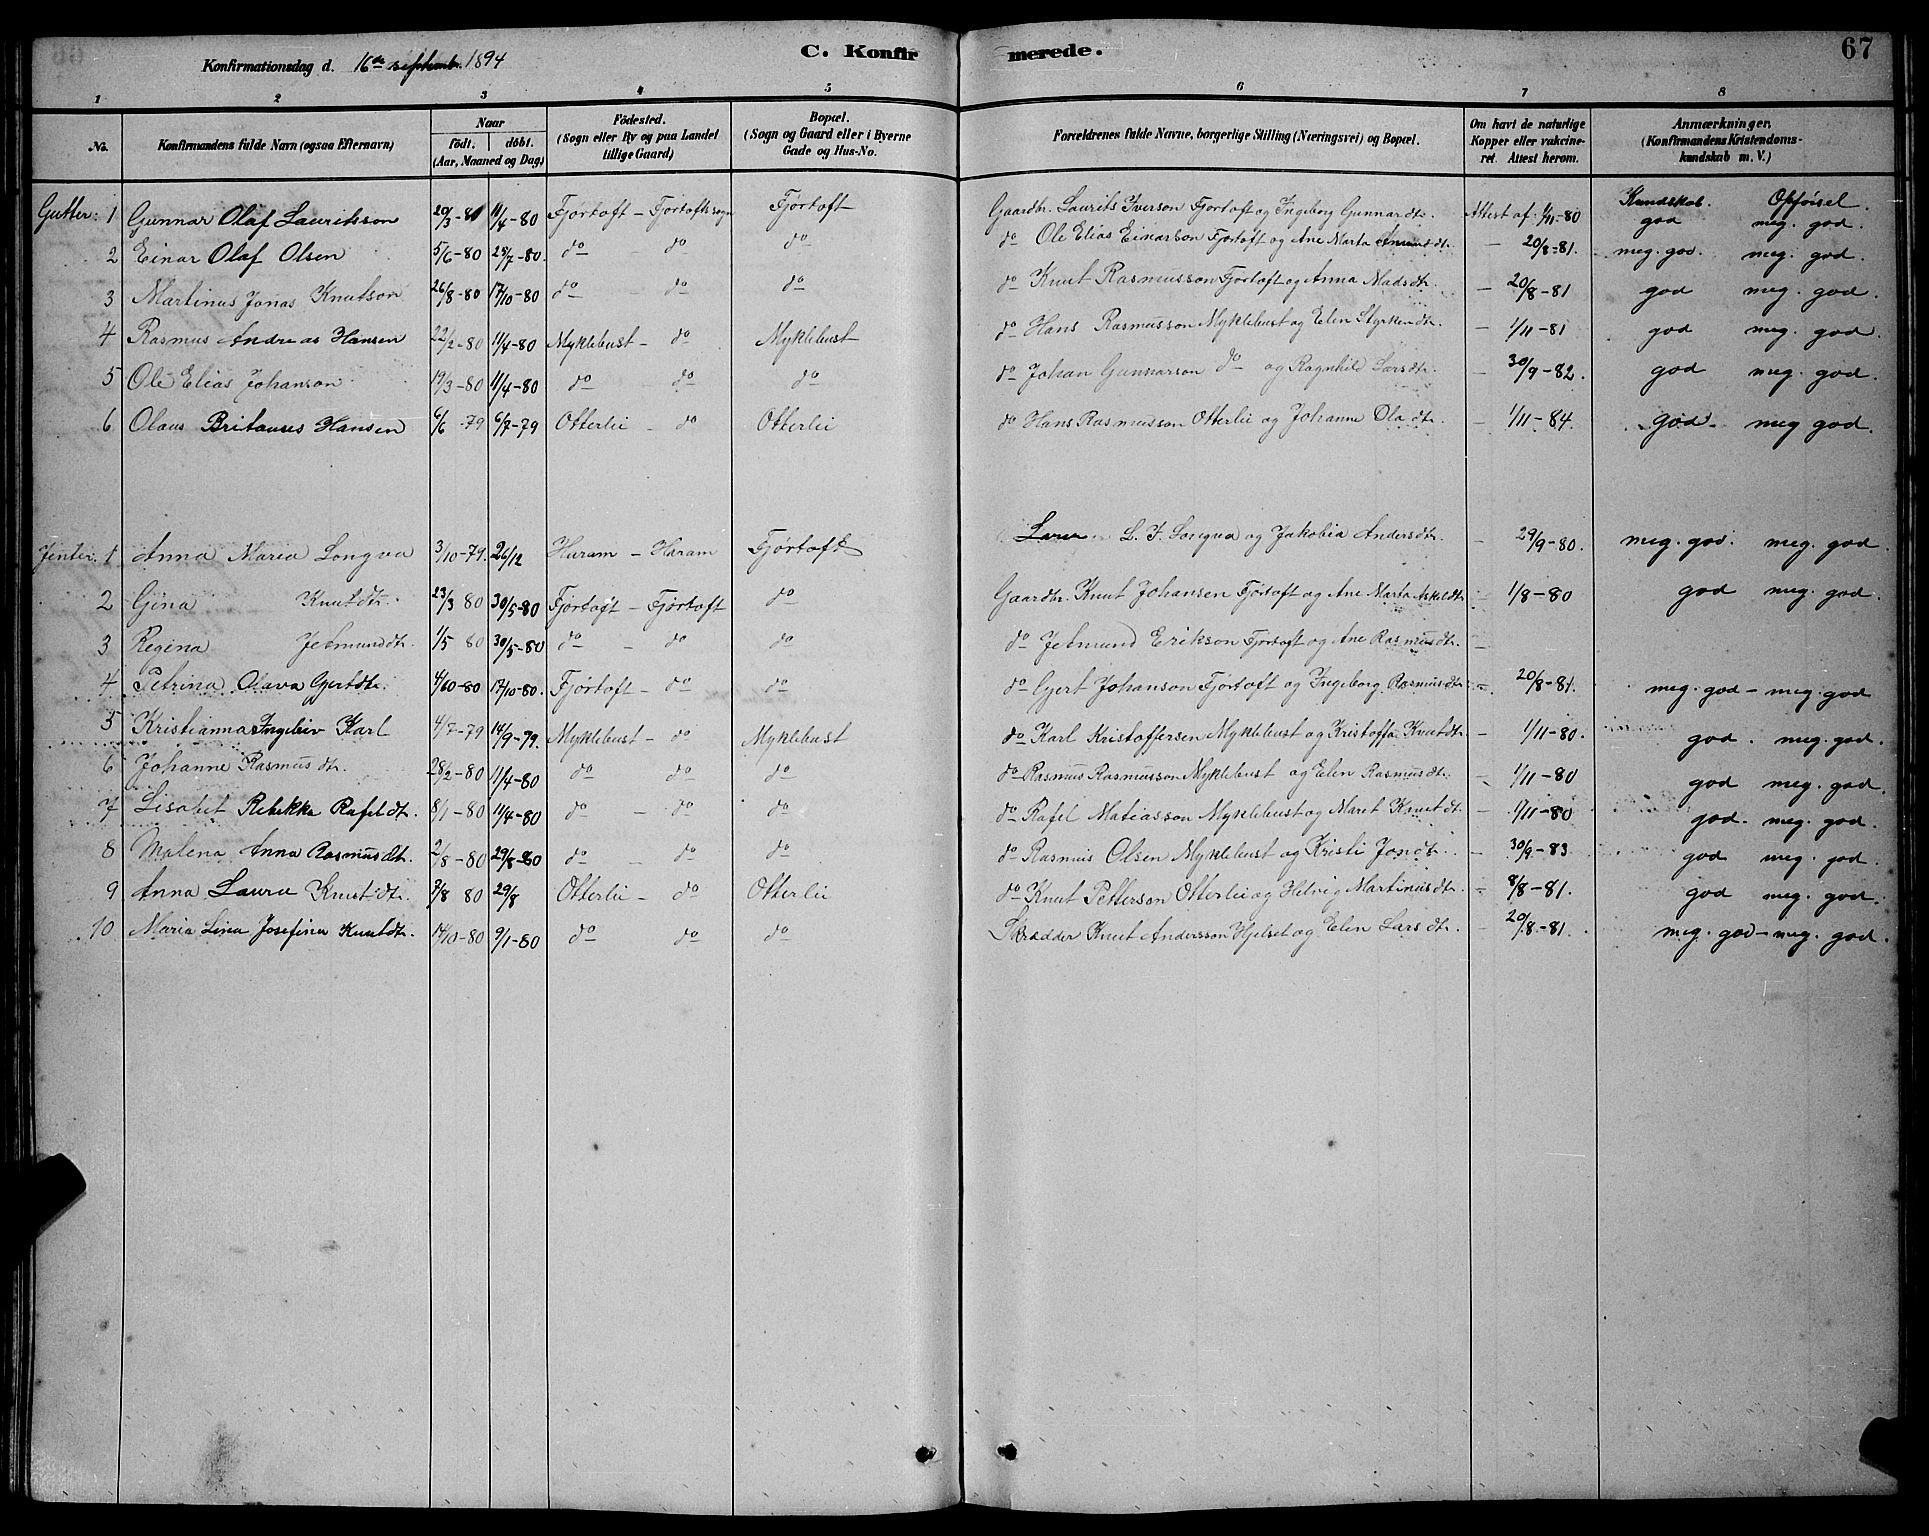 C. Konfirmerede. 67
Konfirmationsdag d. 16de septembr. 1894
1 2 3 4 5 6 7 8
No. Konfirmandens fulde Navn (ogsaa Efternavn) Naar födt. döbt. (Aar, Maaned og Dag) Födested. (Sogn eller By og paa Landet tillige Gaard) Bopæl. (Sogn og Gaard eller i Byerne Gade og Hus-No. Forældrenes fulde Navne, borgerlige Stilling (Næringsvei) og Bopæl. Om havt de naturlige Kopper eller vakcineret. Attest herom. Anmærkninger, (Konfirmandens Kristendomskundskab m. V.)
Kundskab. Opførsel.
Gutter: 1 Gunnar Olaf Lauritsson 20/3-80 11/4-80 Fjørtoft - Fjortoftsogn Fjørtoft Gaardbr. Laurits Iverson Fjortoft og Ingeborg Gunnardtr. Attest af 1/11-80 god meg. god.
2 Einar Olaf Olsen 5/6-80 28/7-80. do - do do do Ole Elias Einarson Fjortoft og Ane Marta Amunddtr. - 20/8-81. meg. god. meg. god.
3 Martinus Jonas Knutson 26/8-80 17/10-80 do do do do Knut Rasmusson Fjortoft og Anna Madsdtr. - 20/8-81 god meg. god.
4 Rasmus Andreas Hansen 22/2-80 11/4-80 Myklebust - do Myklebust do Hans Rasmusson Myklebust og Elen Styrkerdtr. - 1/11-81 god meg. god.
5 Ole Elias Johanson 19/3-80 11/4-80 do do do do Johan Gunnarson do og Ragnhild Larsdtr. - 30/9-82. god meg. god.
6 Olaus Britanus Hansen 6/6-79 6/7-79 Otterlei - do Otterlei do Hans Rasmusson Otterlei og Johanne Oladtr. - 1/11-84. god meg god.
Jenter: 1 Anna Maria Longva 3/10-79. 26/12 Haram - Haram Fjørtoft L. F. Longva og Jakobia Andersdtr. - 29/9-80. meg. god. meg. god.
2 Gina Knutdtr. 23/3 80 30/5-80 Fjørtoft - Fjørtoft do Gaardbr. Knut Johansen Fjørtoft og Ane Marta Askeldtr - 1/8-80 god meg. god.
3 Regina Jetmunddtr. 1/5 80 30/5-80 do - do do do Jetmund Erikson Fjørtoft og Ane Rasmusdtr. -
4 Petrina Olava Gjertdtr. 4/10-80 17/10-80. Fjørtoft - do do do Gjert Johanson Fjørtoft og Ingeborg Rasmusdtr. - 20/8-81. meg. god - meg. god
5 Kristianna Ingeleiv Karl 4/7-79 14/9-79. Myklebust - do Myklebust do Karl Kristoffersen Myklebust og Kristoffa Knutdtr - 1/11-80. god. meg. god.
6 Johanne Rasmusdtr. 28/2-80 11/4-80 do do do do Rasmus Rasmusson Myklebust og Elen Rasmusdtr. - 1/11-80 god meg. god.
7 Lisabet Rebekka Rafeldtr. 8/1-80 11/4-80 do - do do do Rafel Matiasson Myklebust og Maret Knutdtr. - 1/11-80 god. meg. god.
8 Malena Anna Rasmusdtr. 2/8-80 29/8-80 do - do do do Rasmus Olsen Myklebust og Kristi Jondtr. - 30/9-83 god meg. god.
9 Anna Laura Knutdtr. 7/8 80 29/8 Otterlei - do Otterlei do Knut Petterson Otterlei og Helvig Martinusdtr. - 8/8-81. god meg. god.
10 Maria Lina Josefina Knutdtr. 14/10-80 9/1-80 do do do Skrædder Knut Andersson Hjelset og Elen Larsdtr. - 20/8-81. meg. god - meg. god.